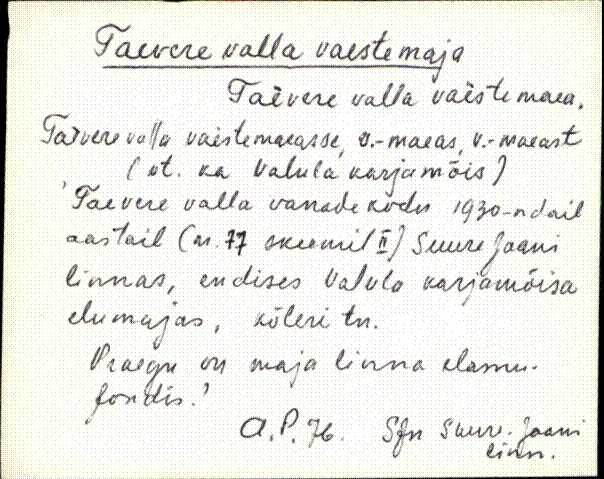 Taevere valla vaestemaja
Taèvere valla vaèstemaea.
Taèvere valla vaèstemaeasse, v.-maeas, v.-maeast
(vt. ka Valula karjamõis)
'Taevere valla vanadekodu 1930-ndail
aastail (nr. 77 skeemil II) Suure Jaani
linnas, endises Valula karjamõisa
elumajas, Köleri tn.
Praegu on maja linna elamu-
fondis.'
A.P. 76. SJn Suure-Jaani
linn.